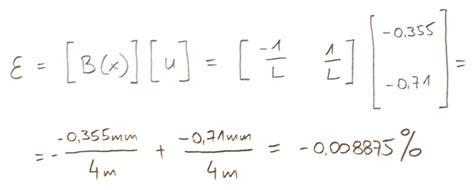 ε = [B(x)][u] = [-1/L 1/L][-0.355 -0,71] =
= - -0,355mm/4m + -0,71mm/4m = -0,008875%